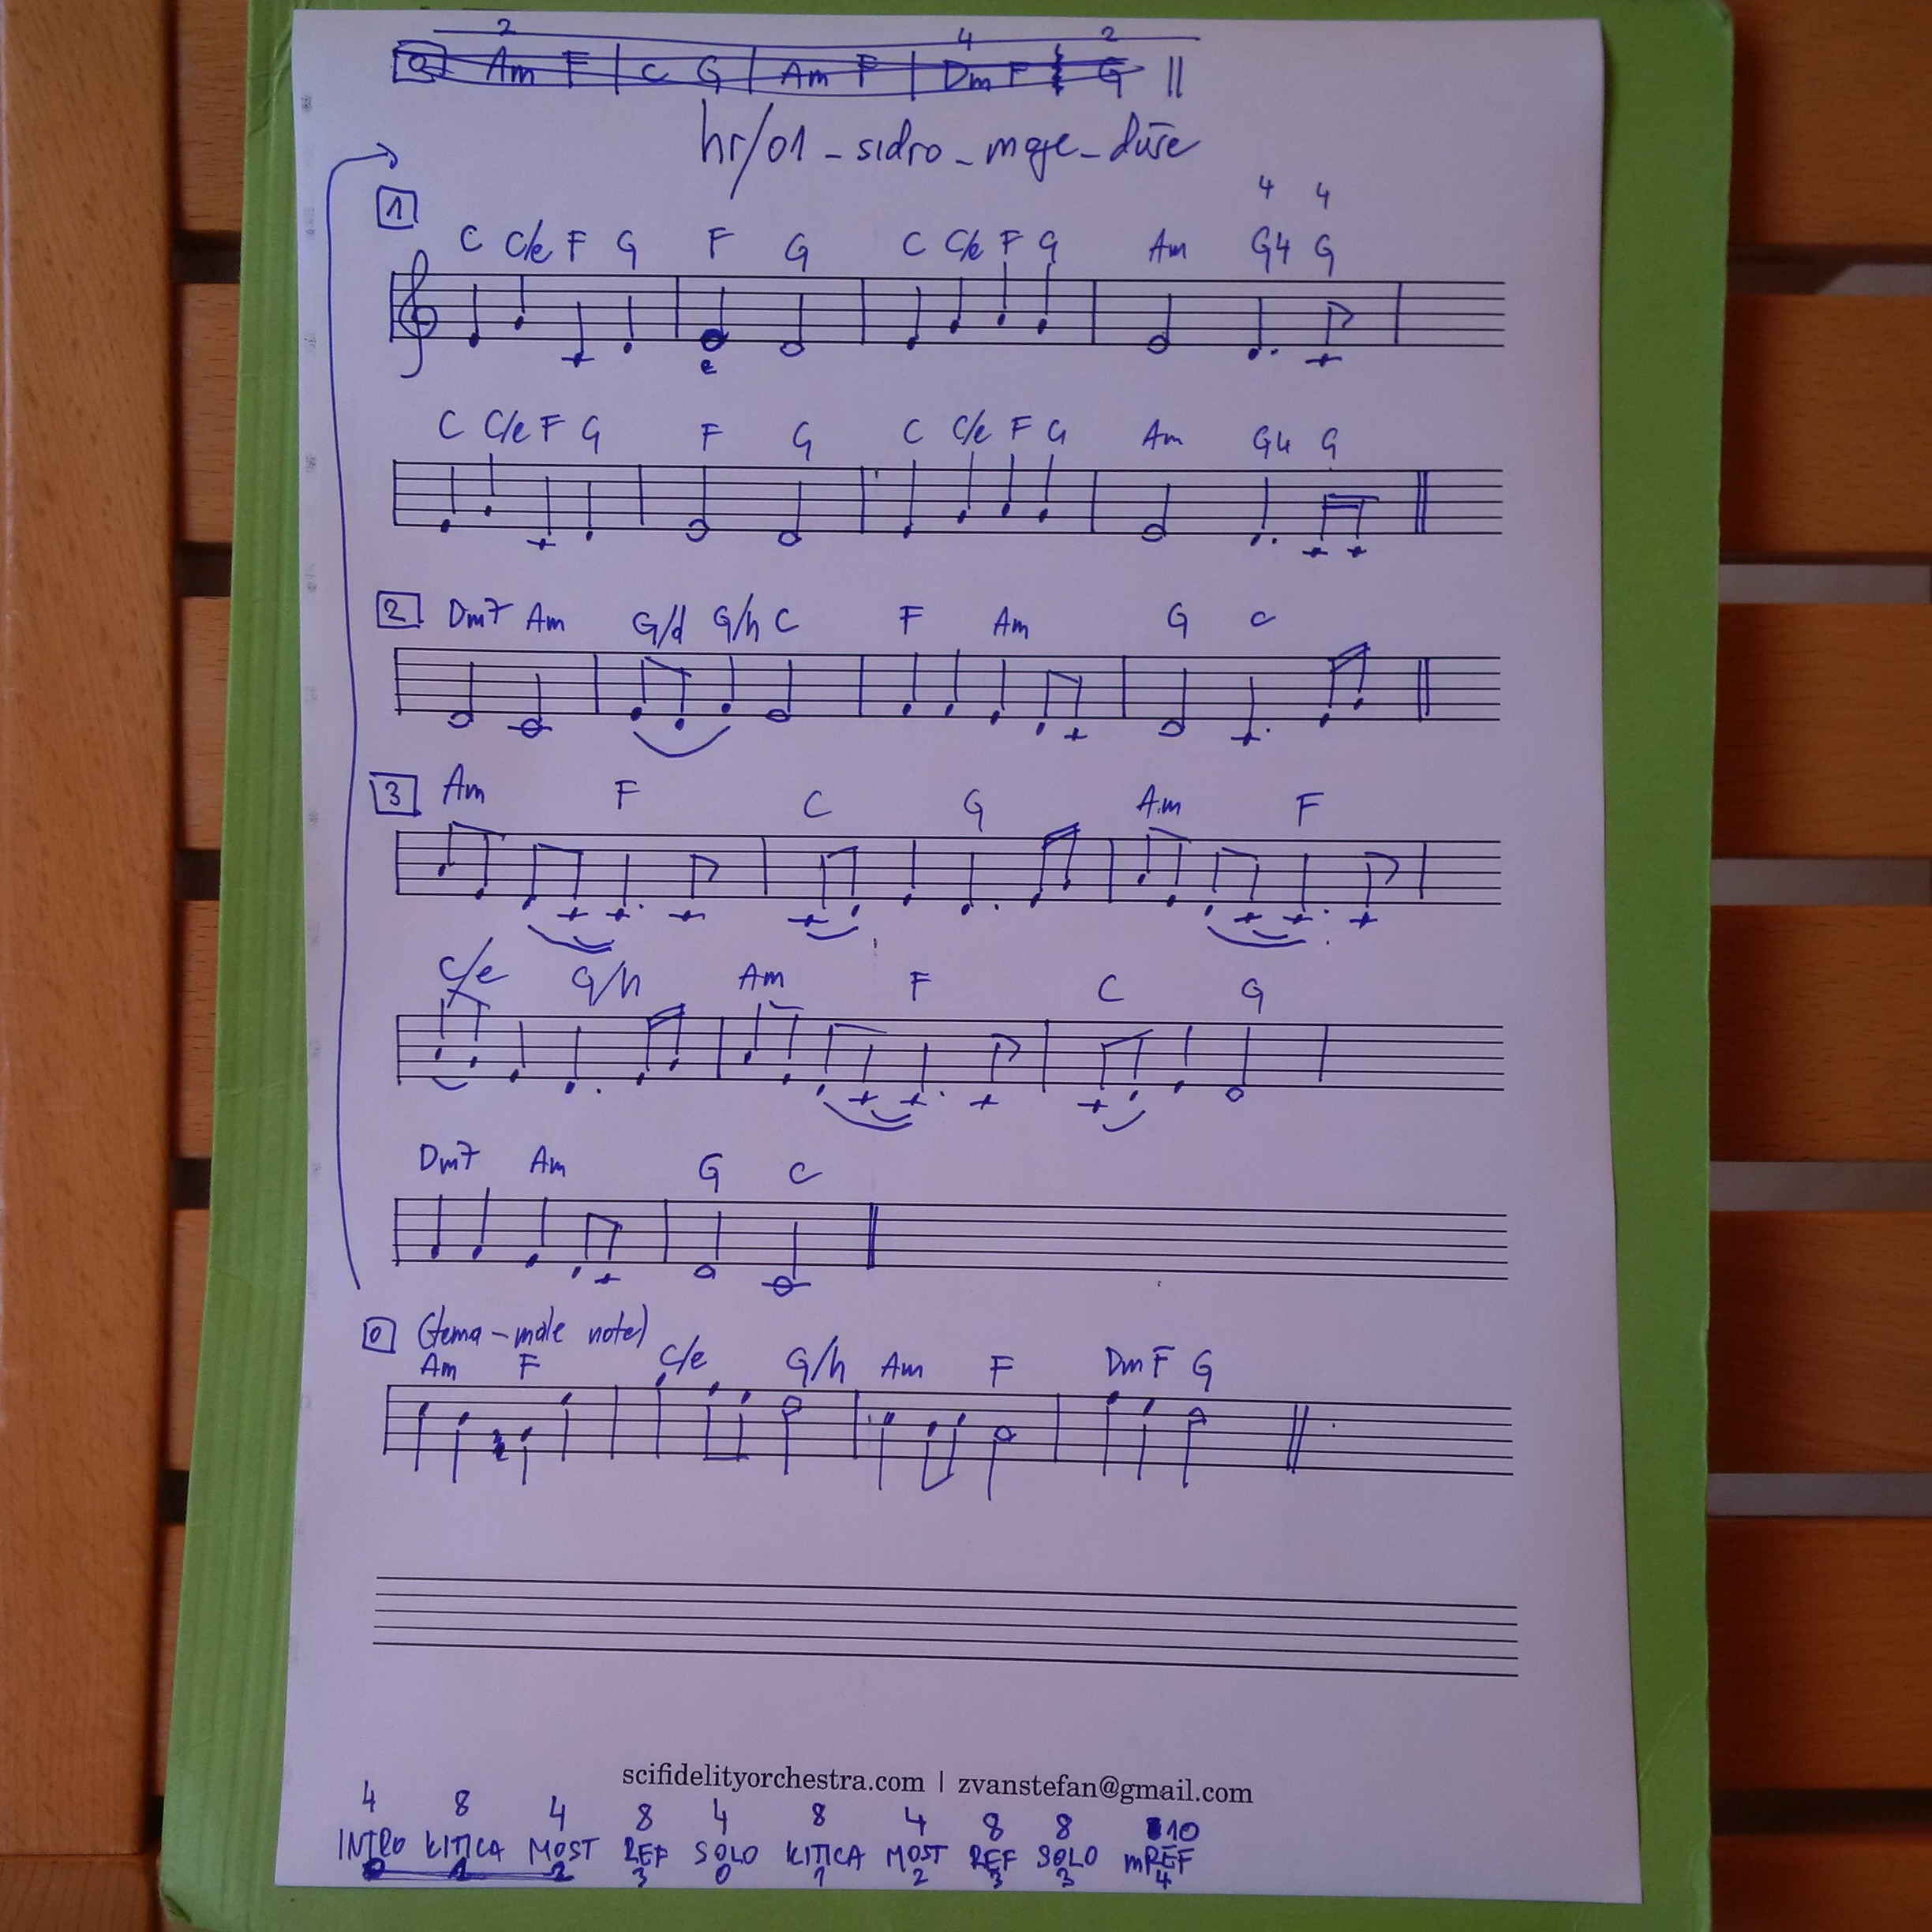 2 4 2
0 Am F | C G | Am F | Dm F G ||
hr/01 - sidro - moje - duše
4 4
1
C C/e F G F G C C/e F G Am G4 G
C C/e F G F G C C/e F G Am G4 G
2 Dm7 Am G/d G/h C F Am G C
3 Am F C G Am F
C/e G/h Am F C G
Dm7 Am G C
0 (tema - male note)
Am F C/e G/h Am F Dm F G
scifidelityorchestra.com | zvanstefan@gmail.com
4 8 4 8 4 8 4 8 8 10
INTRO KITICA MOST REF SOLO KITICA MOST REF SOLO mREF
0 1 2 3 0 1 2 3 3 4